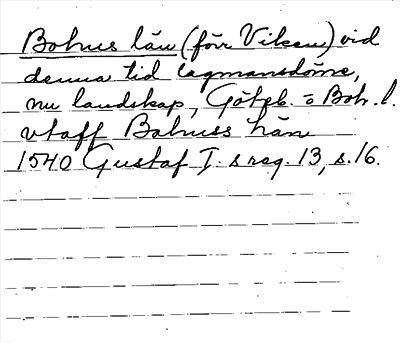 Bohus län (förr Viken) vid
denna tid lagmansdöme,
nu landskap, Göteb. o Boh. l.
vtaff Bahuss hän
1540 Gustaf I. s reg. 13, s. 16.